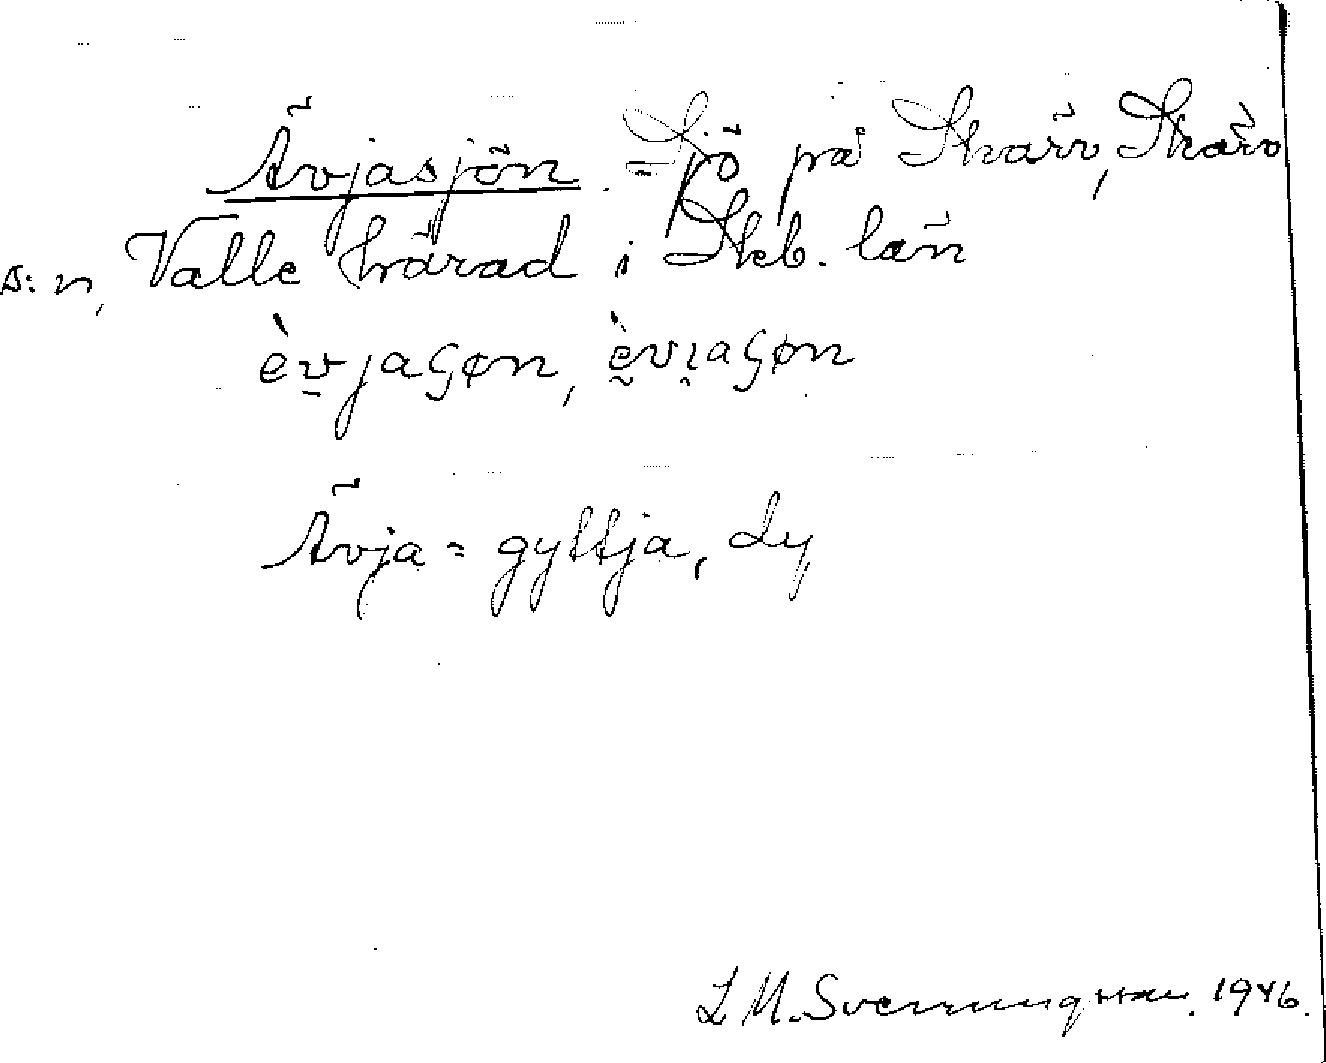 Ävjasjön. Sjö på Skärv, Skärvs
s:n, Valle härad i Skb. län
èvjaʂøn, èvi̯aʂøn
Ävja = gyttja, dy
L M. Svenungsson. 1946.